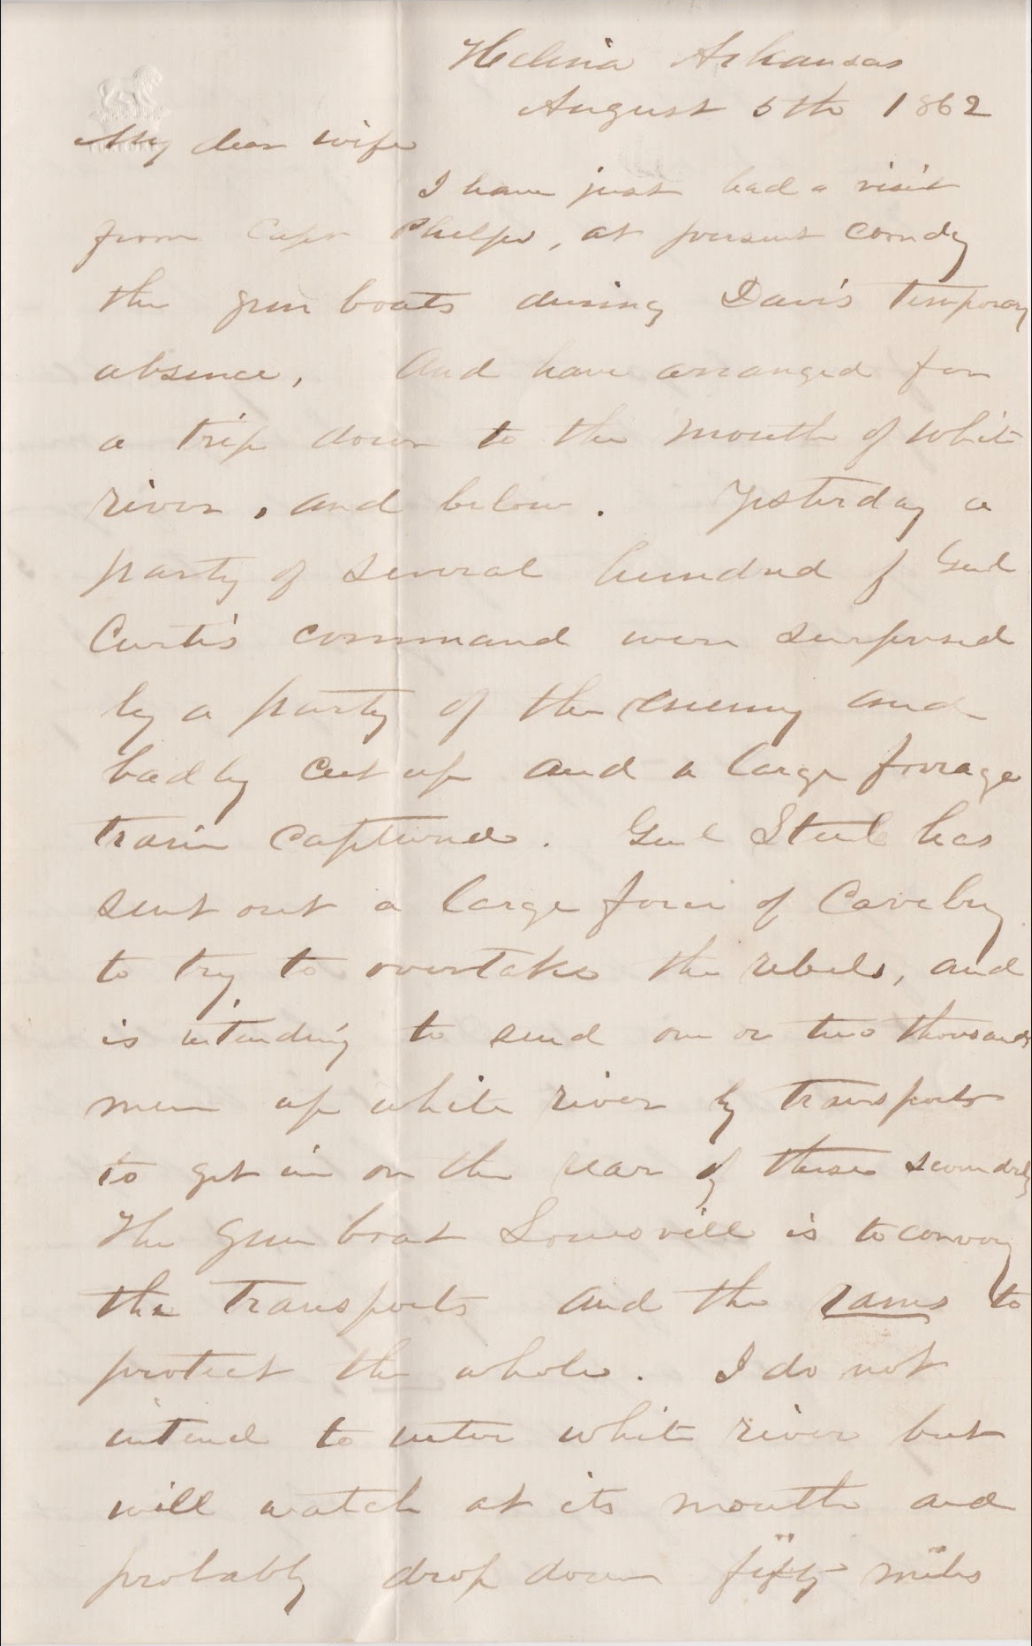 Helena Arkansas
August 5th 1862
My dear wife
I have just had a visit
from Capt Phelps, at present comdg
the gun boats during Davis temporary
absence, And have arranged for
a trip down to the mouth of white
river, and below. Yesterday a
party of several hundred of Genl
Curtis command were surprised
by a party of the enemy and
badly cut up and a large forrage
train captured. Genl Steel has
sent out a large force of Cavelry
to try to overtake the rebels, and
is intending to send one or two thousand
men up white river by transports
to get in on the rear of these scoundrels
The Gun boat Louisvill is to convoy
the transports and the rams to
protect the whole. I do not
intend to enter white river but
will watch at its mouth and
probably drop down fifty miles